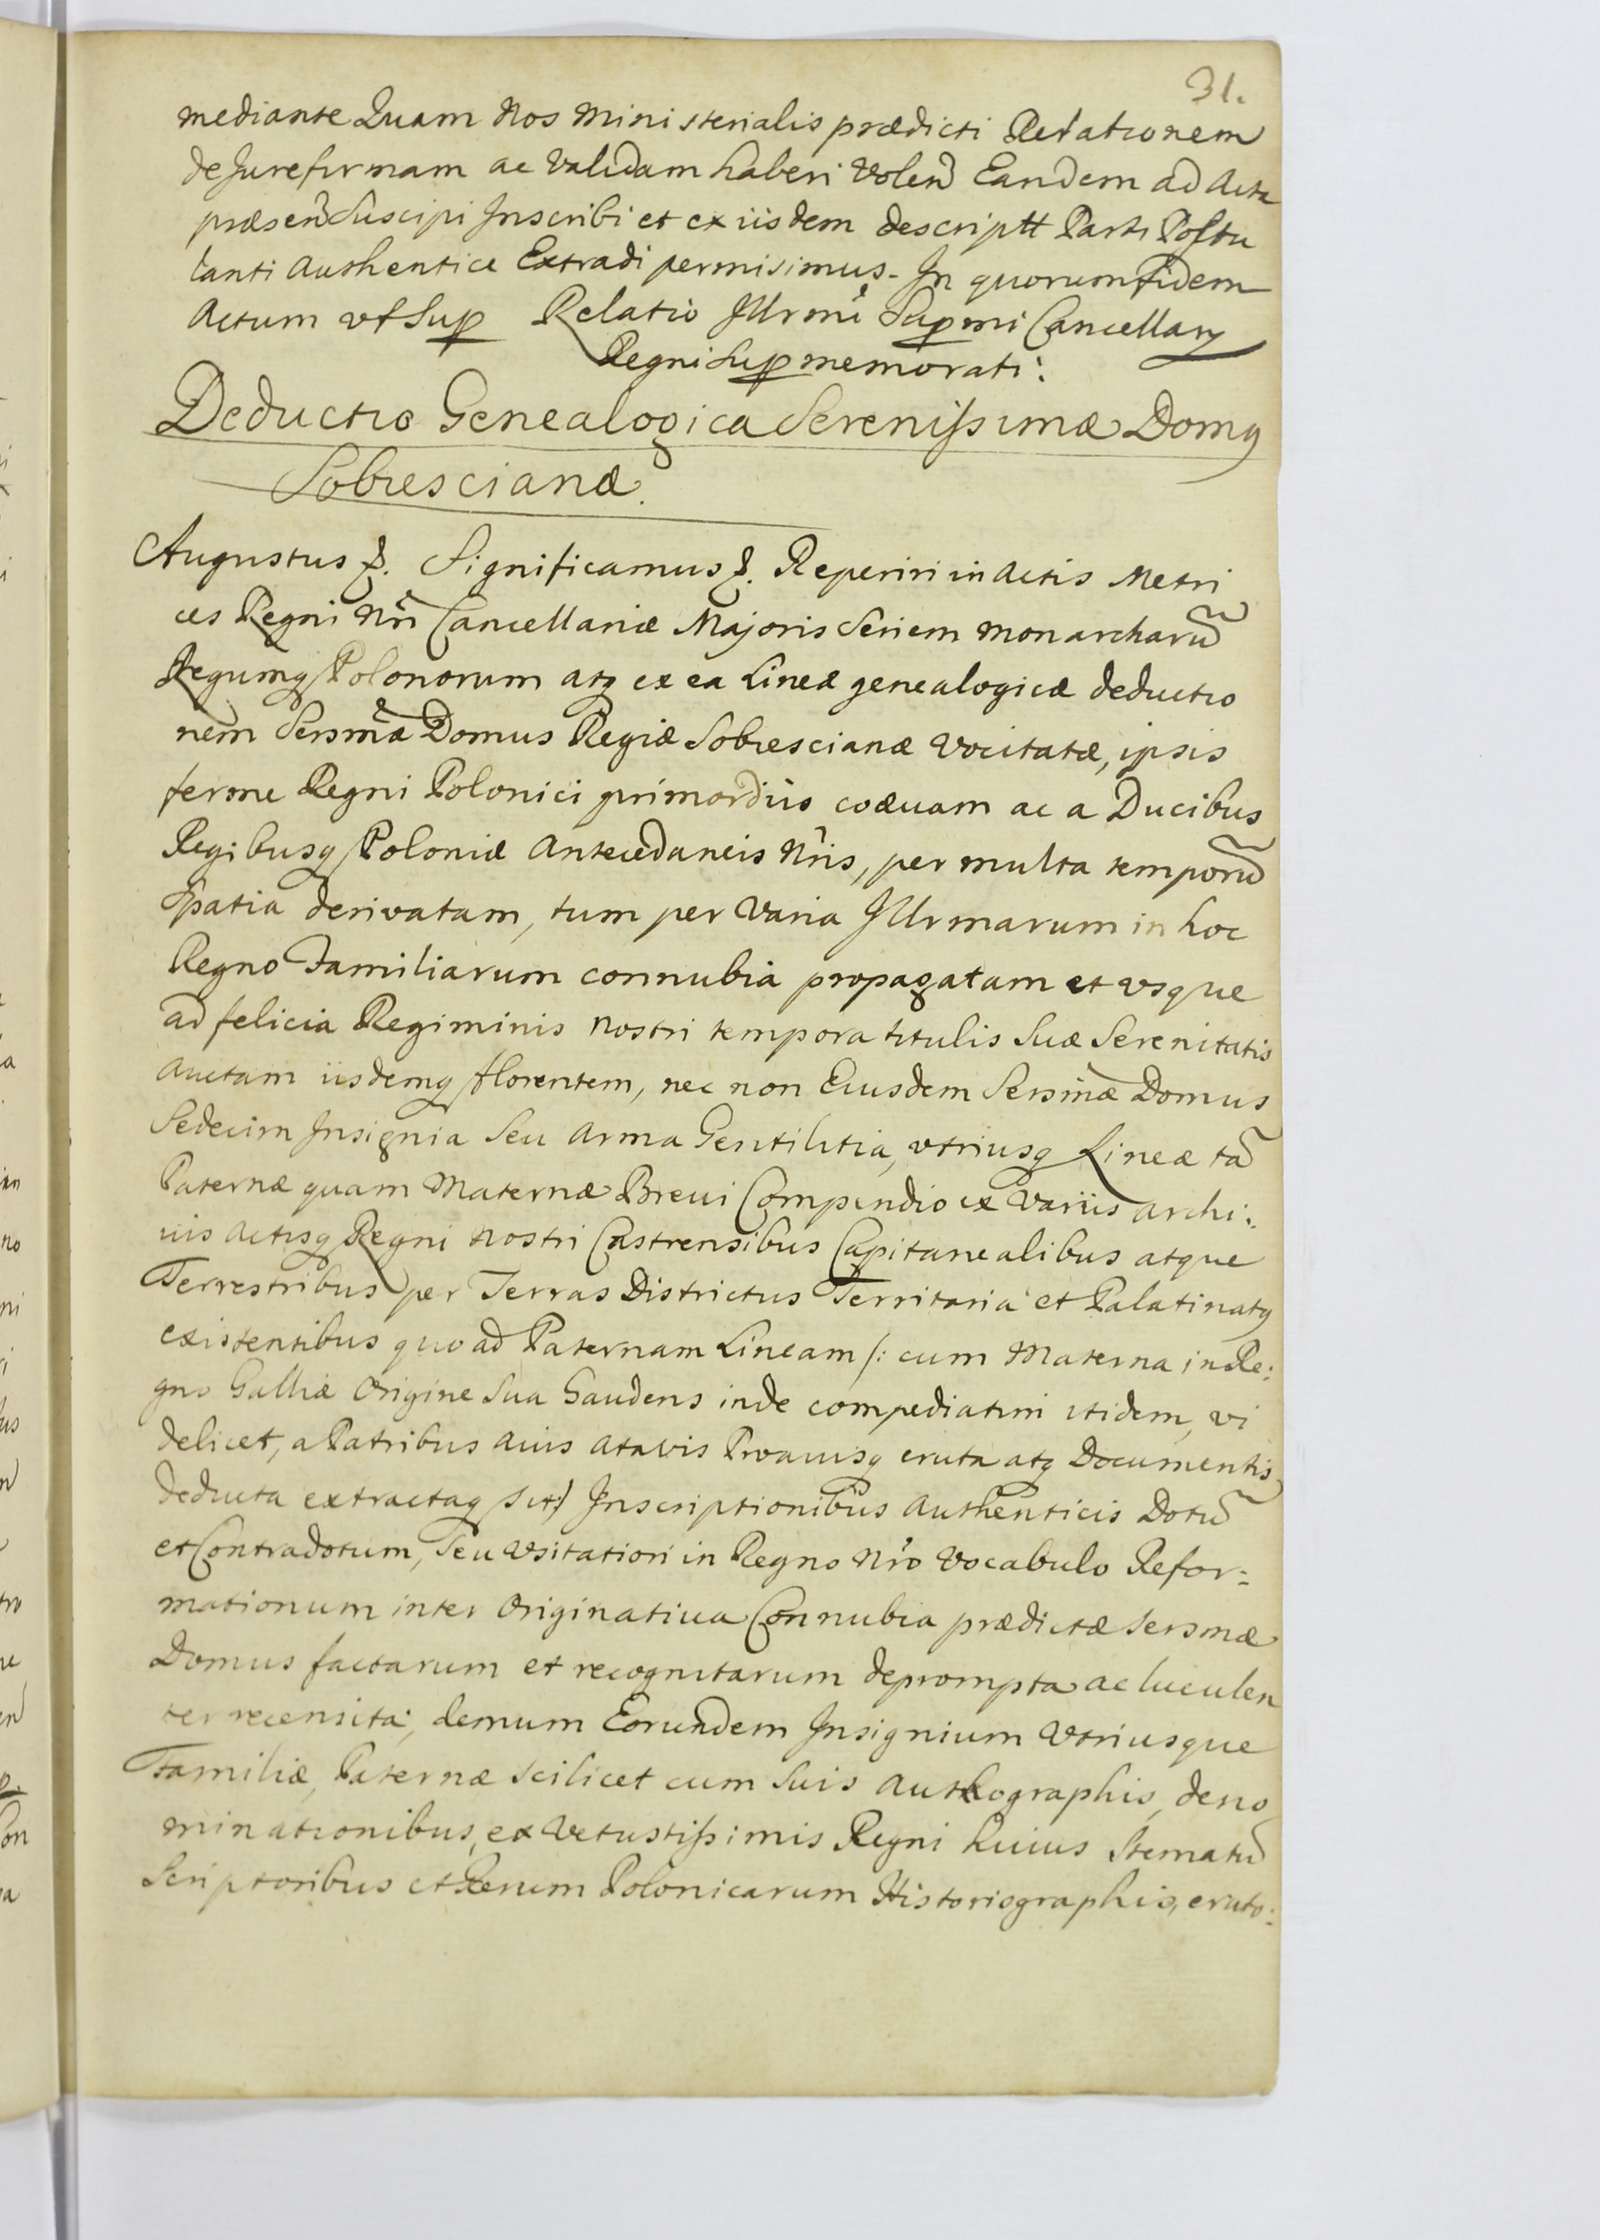 31.
mediante Quam Nos Ministerialis prædicti Relationem
de Jure firmam ac Validam haberi Volen Eandem ad Acta
præsen Suscipi Inscribi et ex iisdem descriptt Parti Postu
lanti Authentice Extradi permisimus. In quorum fidem
Actum ut Sup Relatio Illrmi Supmi Cancellarij
Regni Sup memorati:
Deductio Genealogica Serenissimæ Domq
Sobiescianæ.
Augustus &. Significamus &. Reperiri in Actis Metri
ces Regni Nri Cancellariæ Majoris Seriem Monarcharũ
Regumq Polonorum atq ex ea Lineæ genealogicæ deductio
nem Sersmæ Domus Regiæ Sobiescianæ Vocitatæ, ipsis
ferme Regni Polonici primordiis coævam ac a Ducibus
Regibusq Poloniæ Antecedaneis Nris, per multa temporũ
Spatia derivatam, tum per Varia Illrmarum in hoc
Regno Familiarum connubia propagatam et vsque
ad felicia Regiminis Nostri tempora titulis Suæ Serenitatis
Auctam iisdemq florentem, nec non Eiusdem Sersmæ Domus
Sedecim Insignia Seu Arma Gentilitia, vtriusq Lineæ tã
Paternæ quam Maternæ Breui Compendio ex Variis Archi:
uis Actisq Regni Nostri Castrensibus Capitanealibus atque
Terrestribus per Terras Districtus Territoria et Palatinatq
existentibus quoad Paternam Lineam /: cum Materna in Re:
gno Galliæ Origine Sua Gaudens inde compediatim itidem, vi
delicet, a Patribus Auis Atavis Proauisq eruta atq Documentis
deducta extractaq sit :/ Inscriptionibus Authenticis Dotũ
et Contradotum, Seu Vsitatiori in Regno Nro Vocabulo Refor:
mationum inter Originatiua Connubia prædictæ Sersmæ
Domus factarum et recognitarum deprompta ac luculen
ter recensita, demum Eorundem Insignium Vtriusque
Familiæ, Paternæ scilicet cum Suis Authographis, deno
minationibus, ex Vetustissimis Regni huius Stematũ
Scriptoribus et Rerum Polonicarum Historiographis, eruto: